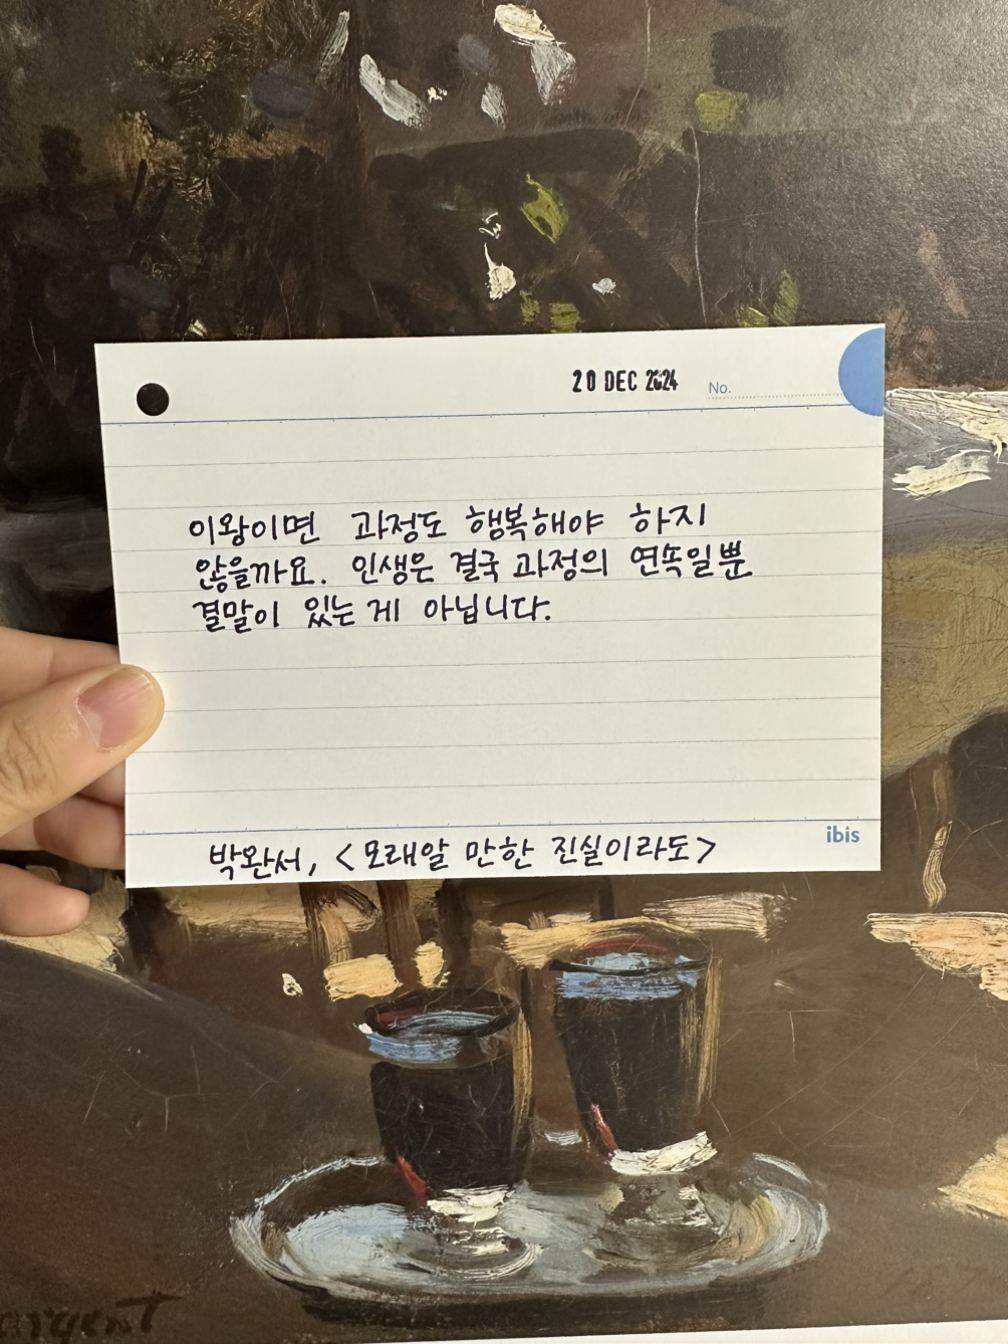 20 DEC 2024 No.
이왕이면 과정도 행복해야 하지
않을까요. 인생은 결국 과정의 연속일뿐
결말이 있는 게 아닙니다.
ibis
박완서, <모래알 만한 진실이라도>
argent